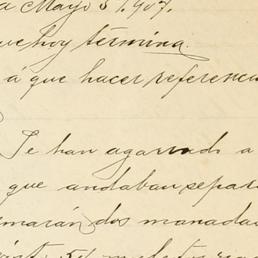 a Mayo 3 1907.
que hoy termina.
á que hacer referenc
Se han agarrado a
que andaban sepa
marán dos manada